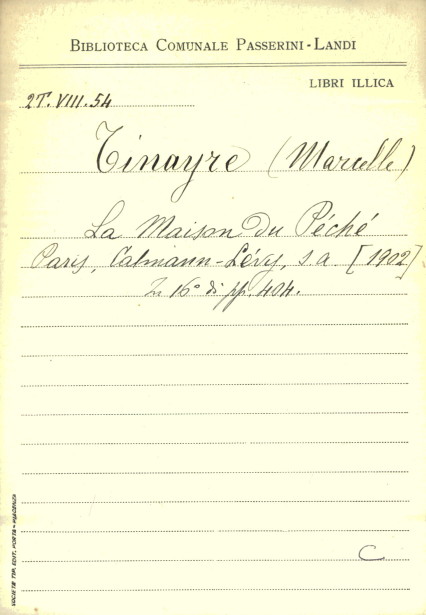 BIBLIOTECA COMUNALE PASSERINI-LANDI
LIBRI ILLICA
2T.VIII.54
Tinayre (Marcelle)
La Maison du Péché
Paris, Calmann-Lévy, s a [1902]
In 16° di pp. 404.
C
SOCIETÀ TIP. EDIT. PORTA - PIACENZA